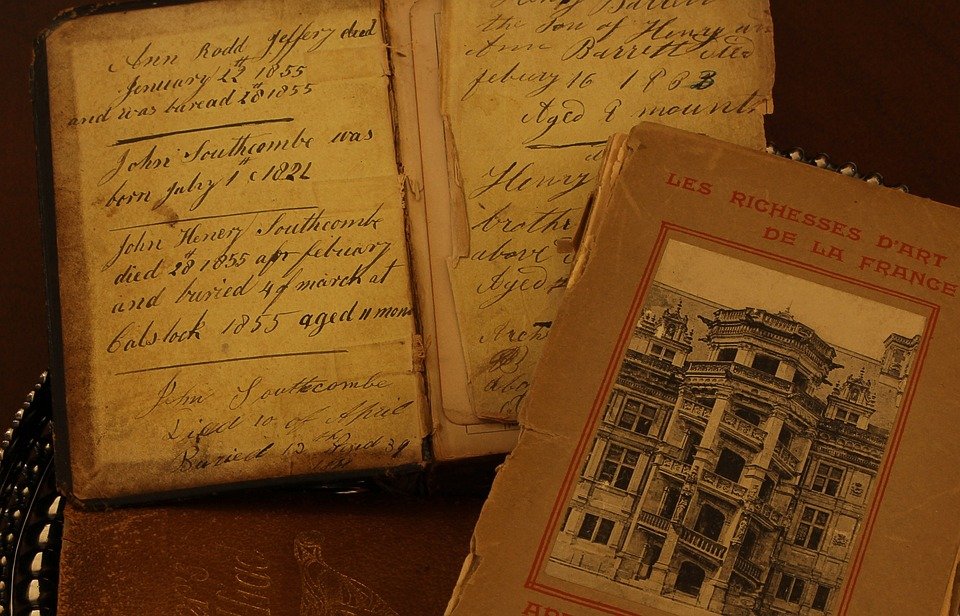 Ann Rodd Jeffery died
Jenuary 22th 1855
and was buread 28 1855
John Southcombe was
born july 1st 1821
John Henery Southcombe
died 28 1855 apr febuary
and buried 4 of march at
1855 aged 11 mon
John Southcombe
Died 10 of April
Buried 13
the Son of Henry an
Ann Barrett died
febury 16 1883
Aged 9 mounth
Henry
brothe
above
Aged
LES RICHESSES D'ART
DE LA FRANCE